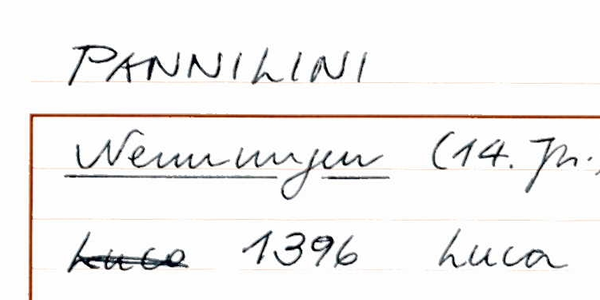 PANNILINI
Nennungen (14. Jh.)
Luca 1396 Luca